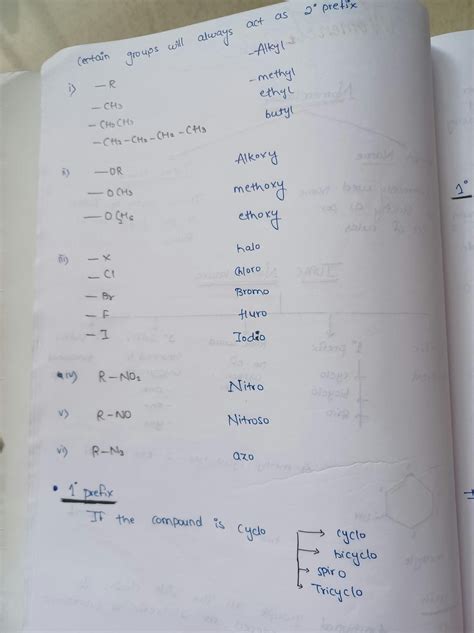 certain groups will always act as 2° prefix
i) —R -Alkyl
—CH3 -methyl
—CH2CH3 ethyl
—CH2-CH2-CH2-CH3 butyl
ii) —OR Alkoxy
—OCH3 methoxy
—OC2H5 ethoxy
iii) —X halo
—Cl chloro
—Br Bromo
—F fluro
—I Iodio
iv) R-NO2 Nitro
v) R-NO Nitroso
vi) R-N3 azo
• 1° prefix
If the compound is cyclo → cyclo
→ bicyclo
→ spiro
→ Tricyclo
1°